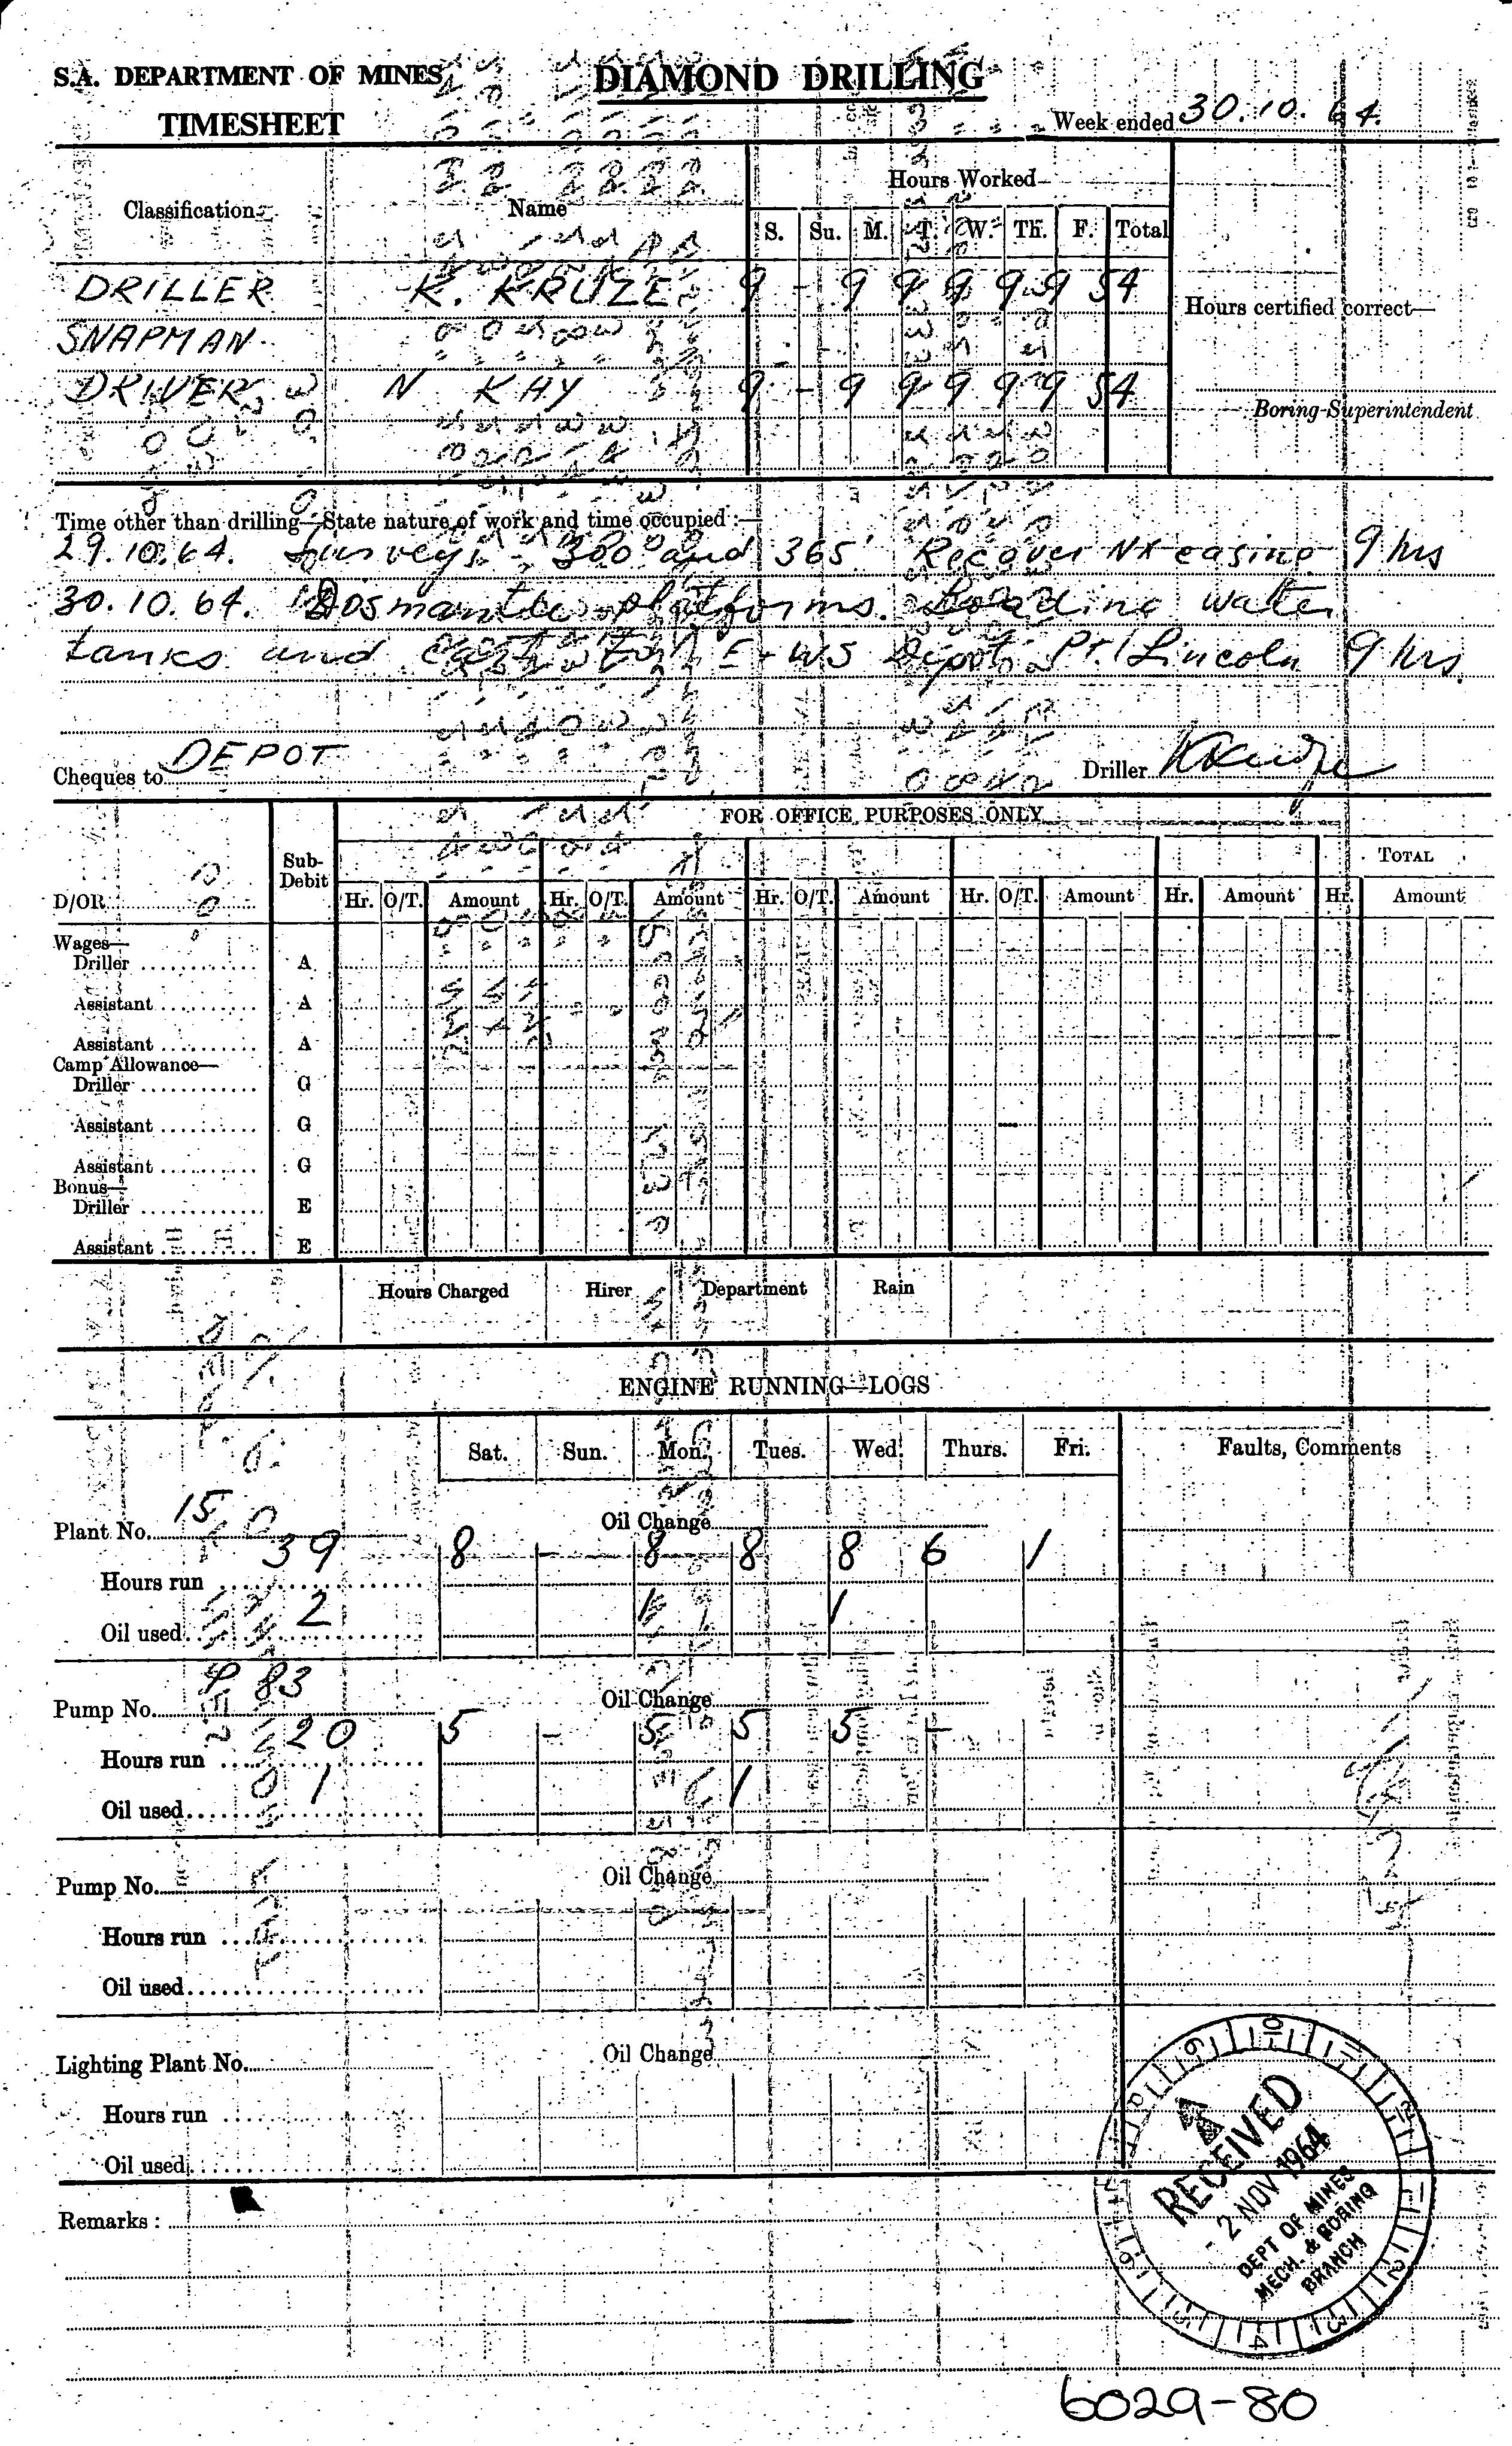 S.A. DEPARTMENT OF MINES
DIAMOND DRILLING
TIMESHEET
Week ended 30.10.64.
Classification
Name
Hours Worked—
S. Su. M. T. W. Th. F. Total
DRILLER K. KRUZE 9 - 9 9 9 9 9 54
Hours certified correct—
SNAPMAN
DRIVER N KAY 9 - 9 9 9 9 9 54
Boring Superintendent
Time other than drilling—State nature of work and time occupied :—
29.10.64. Surveys - 300' and 365' Recover NX casing 9 hrs
30.10.64. Dosmantle platforms. Loading water
tanks and cart to E+WS Depot Pt. Lincoln 9 hrs.
Cheques to DEPOT
Driller
FOR OFFICE PURPOSES ONLY
Sub-Debit
TOTAL
D/OR
Hr. O/T. Amount Hr. O/T. Amount Hr. O/T. Amount Hr. O/T. Amount Hr. Amount Hr. Amount
Wages—
Driller A
Assistant A
Assistant A
Camp Allowance—
Driller G
Assistant G
Assistant G
Bonus—
Driller E
Assistant E
Hours Charged Hirer Department Rain
ENGINE RUNNING—LOGS
Sat. Sun. Mon. Tues. Wed. Thurs. Fri. Faults, Comments
Plant No. 15 Oil Change
Hours run 39 8 - 8 8 8 6 1
Oil used 2 1 1
Pump No. P 83 Oil Change
Hours run 20 5 - 5 5 5 -
Oil used 1 1
Pump No. Oil Change
Hours run
Oil used
Lighting Plant No. Oil Change
Hours run
Oil used
Remarks :
RECEIVED
- 2 NOV 1964
DEPT OF MINES
MECH. & BORING
BRANCH
6029-80